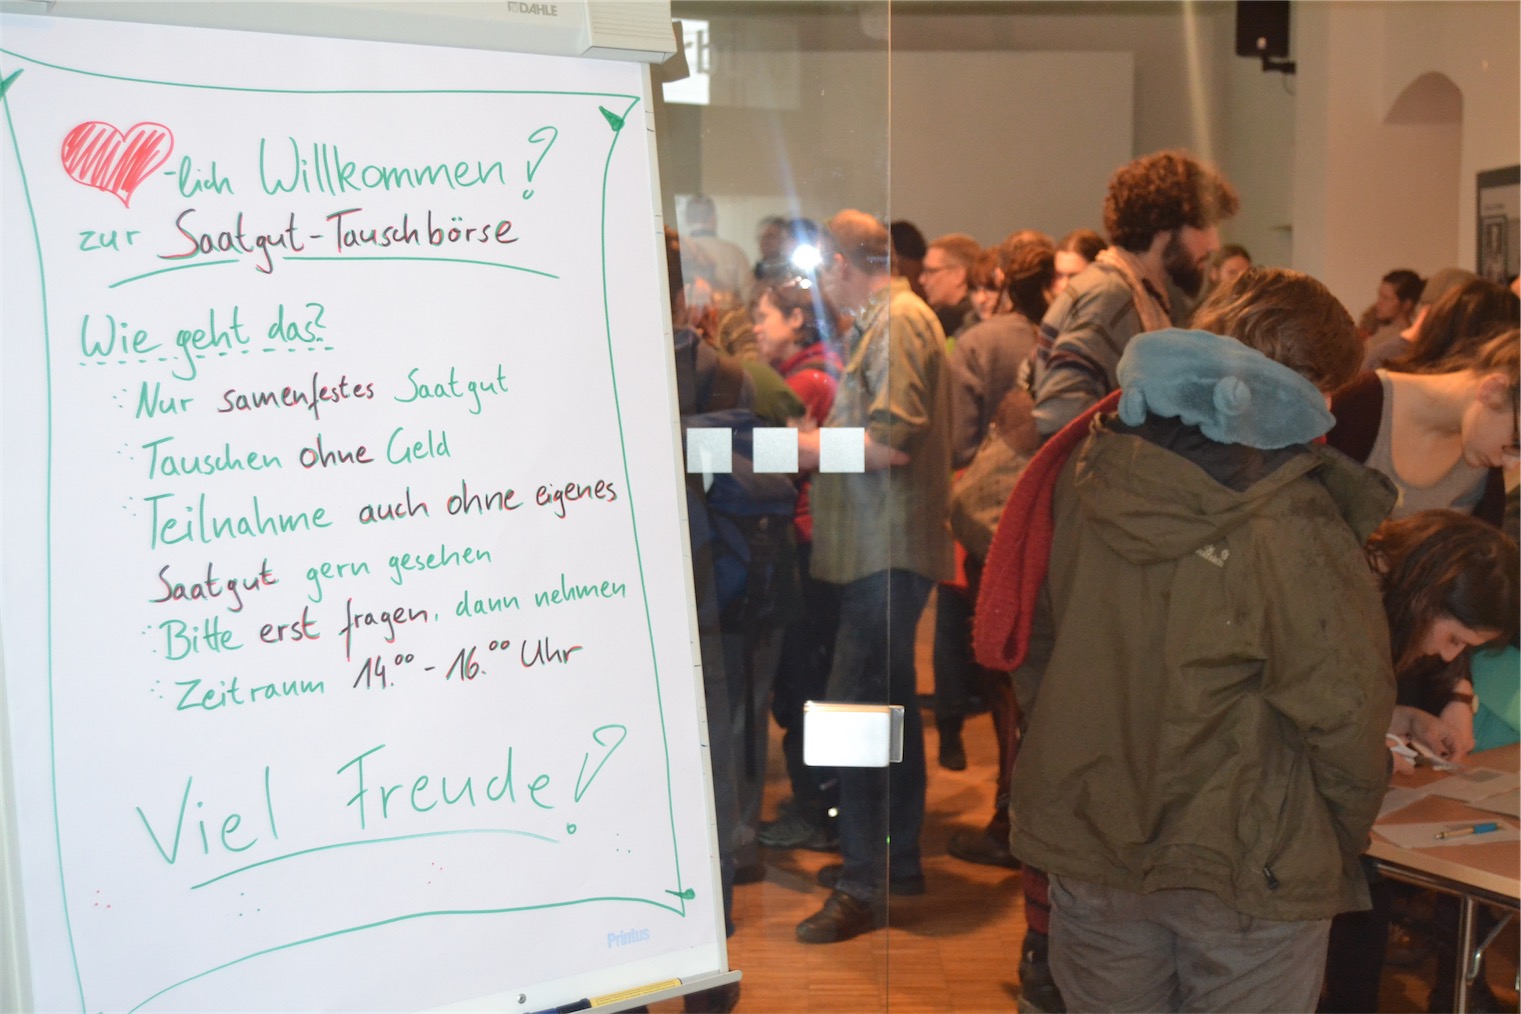 DAHLE
-lich Willkommen!
zur Saatgut-Tauschbörse
Wie geht das?
Nur samenfestes Saatgut
Tauschen ohne Geld
Teilnahme auch ohne eigenes
Saatgut gern gesehen
Bitte erst fragen, dann nehmen
Zeitraum 14.00 - 16.00 Uhr
Viel Freude!
Printus